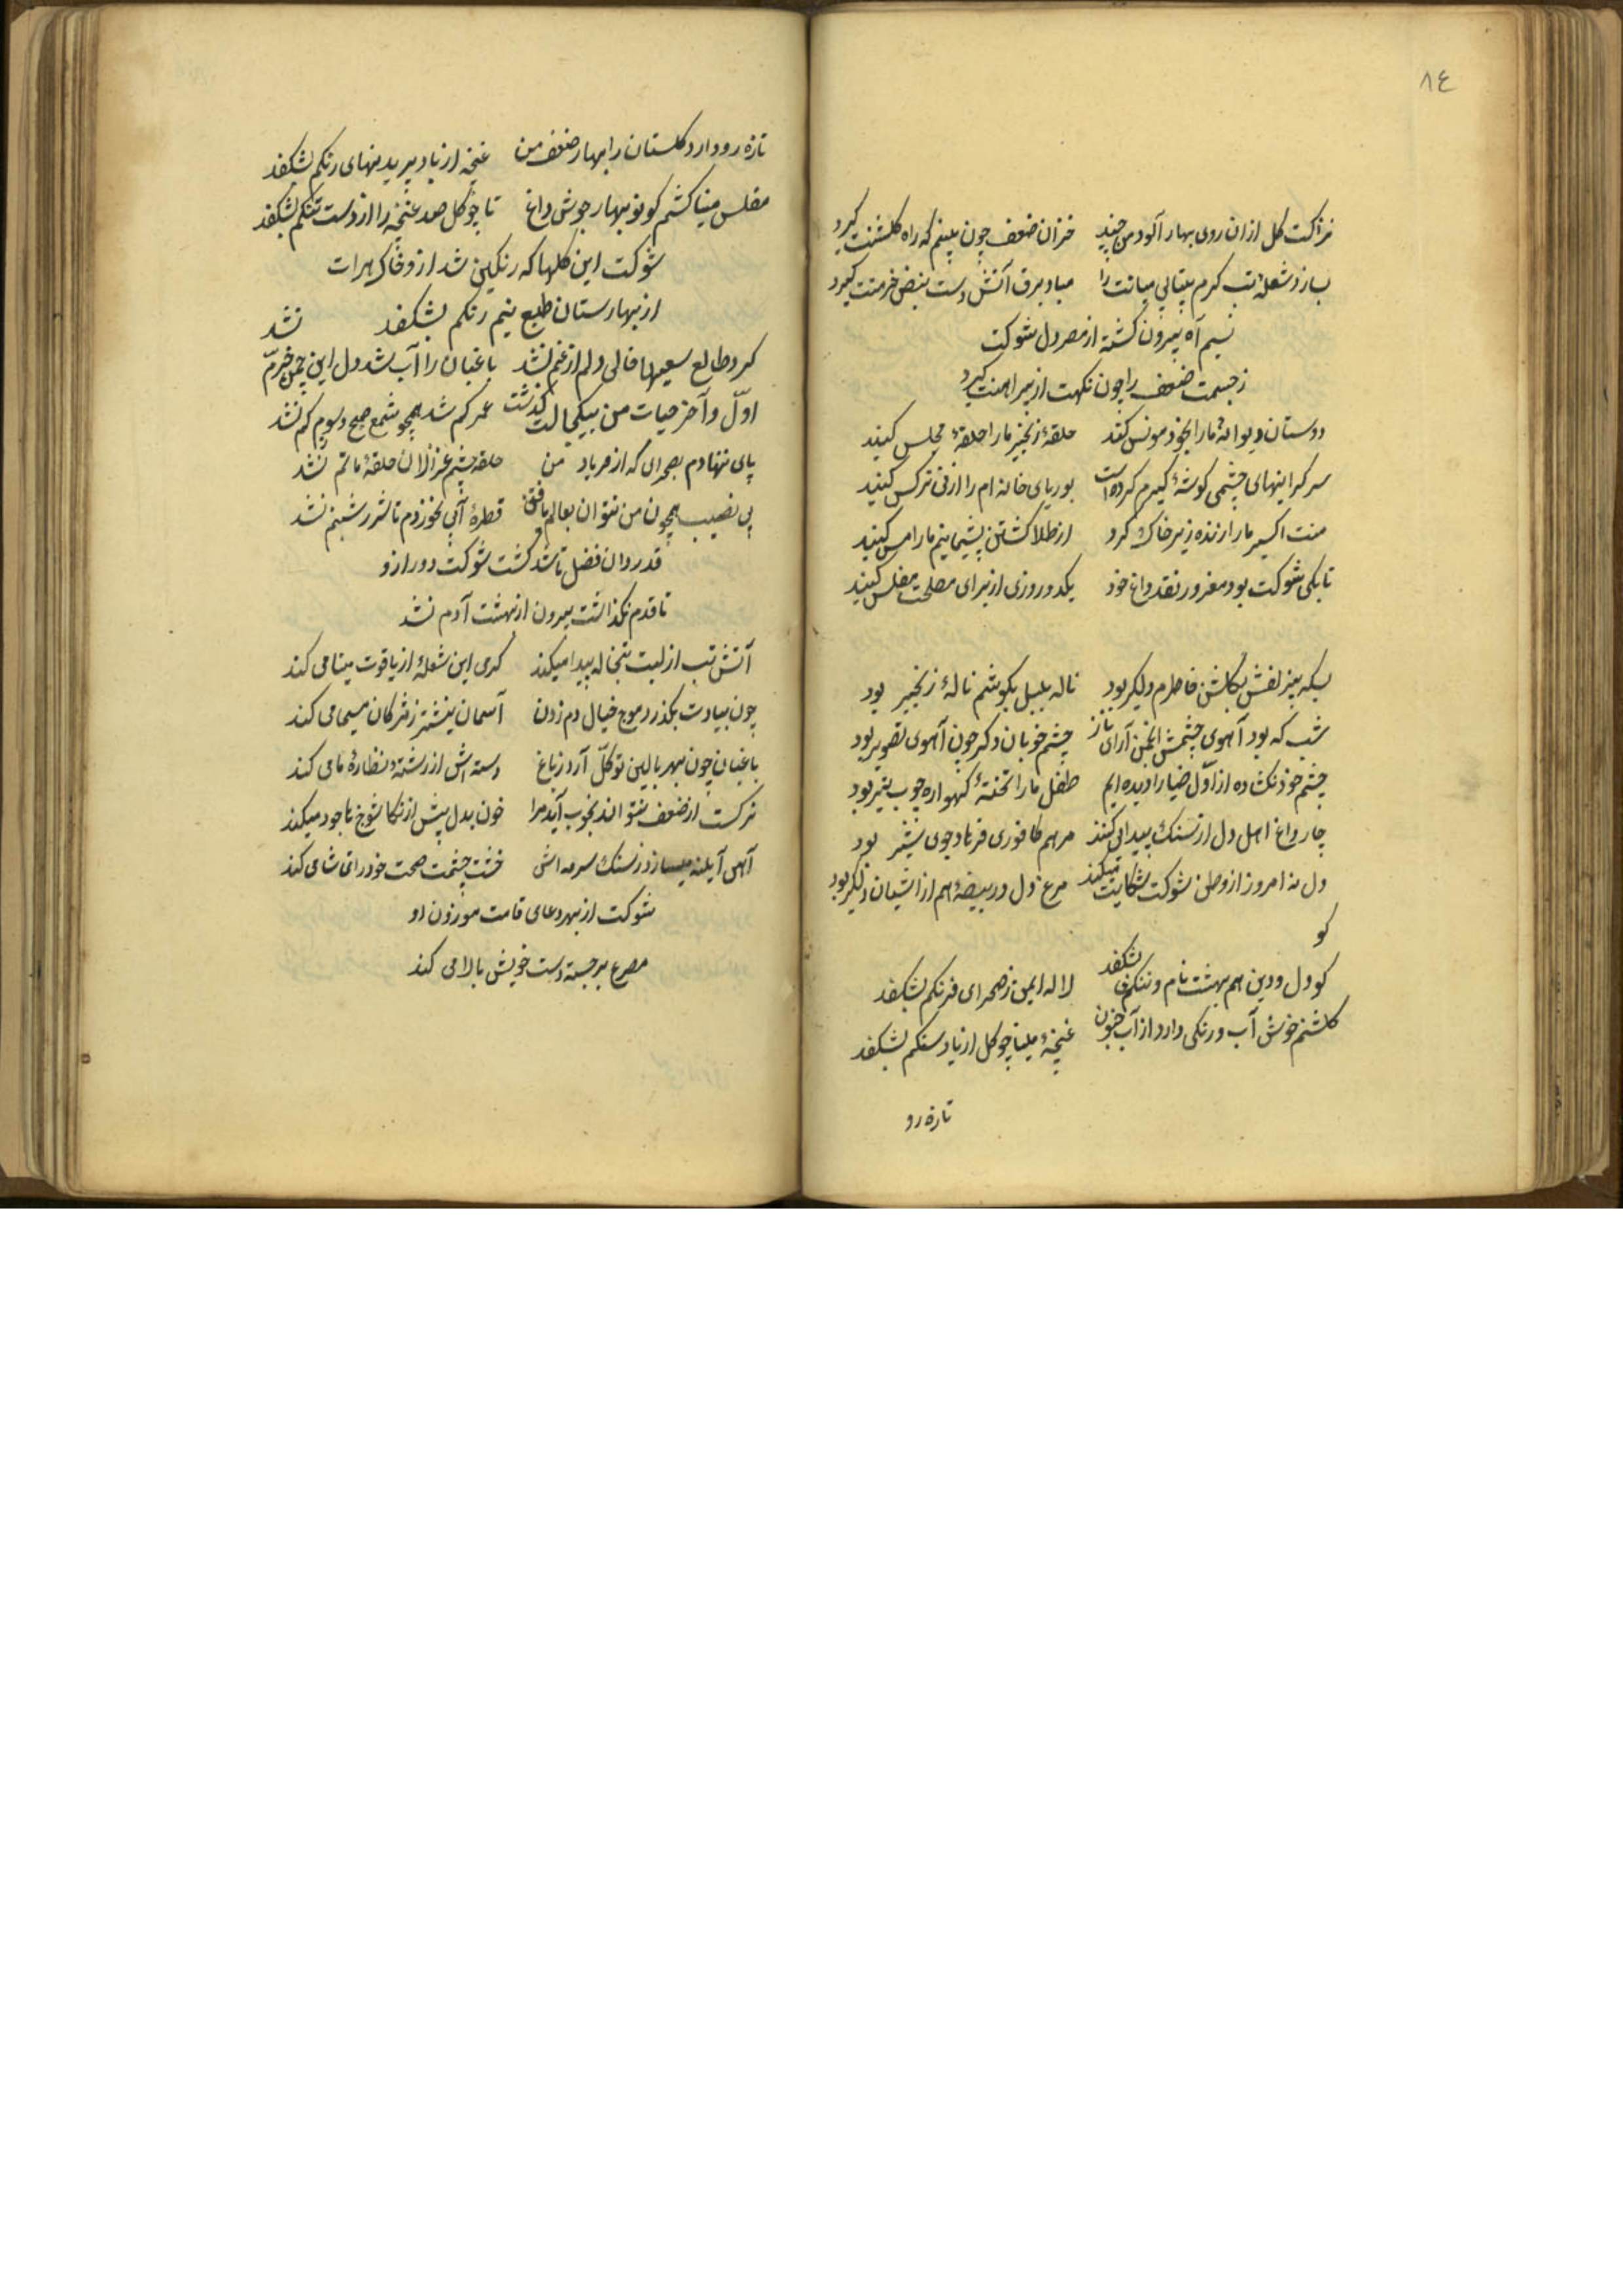 ٨٤
نزاکت کل ازان روی بهار آلود من چیند خزان ضعف چون بینم که راه کلشنت کیرد
بسازد شعلهٔ تب کرم بیتابی میانت را مباد برق آتش دست نبض خرمنت کیرد
نسیم آه بیرون کشته از مصر دل شوکت
ز جسمت ضعف را چون نکهت از پیراهنت کیرد
دوستان دیوانهٔ ما را بخود مونس کنند حلقهٔ زنجیر ما را حلقهٔ مجلس کنید
سرکرانیهای چشمی کوشهٔ کیرم کرده است بوریای خانه ام را از نی نرکس کنید
منت اکسیر ما را زنده زیر خاک کرد از طلا کشتن پشیمانیم ما را مس کنید
تا بکی شوکت بود مغرور نقد داغ خود یکدو روزی از برای مصلحت مفلس کنید
بسکه بیز لفش بکلشن خاطرم دلکیر بود ناله بلبل بکوشم نالهٔ زنجیر بود
شب که بود آهوی چشمش انجمن آرای ناز چشم خوبان دکر چون آهوی تصویر بود
چشم خود نکشاده از اوّل ضیا را دیده ایم طفل ما را تختهٔ کهواره چوب تیر بود
چار داغ اهل دل از سنک پیدا می کنند مرهم کافوری فرهاد جوی شیر بود
دل نه امروز از وطن شوکت شکایت میکند مرغ دل در بیضهٔ هم از اشیان دلکیر بود
کو
کو دل و دین هم بهشت نام و ننکم بشکفد لاله ایمن ز صحرای فرنکم بشکفد
کلشنم خوش آب و رنکی دارد از آب جنون غنچهٔ مینا چو کل از باد سنکم بشکفد
تازه رو
تازه رو دارد کلستان را بهار ضعف من غنچه از باد پریدنهای رنکم بشکفد
مفلس مینا کشم کو نوبهار جوش داغ تا چو کل صد غنچه را از دست تنکم بشکفد
شوکت این کلها که رنکین شد ازو خاک هرات
از بهارستان طبع نیم رنکم بشکفد
کرد طالع سعیها خالی دلم از غم نشد باغبان را آب شد دل این چمن خرّم نشد
اوّل و آخر حیات من بیکحالت کذشت عمر کم شد همچو شمع صبح و سوزم کم نشد
پای ننهادم بصحرای که از فریاد من حلقه چشم غزالان حلقهٔ ماتم نشد
بی نصیب همچون من نتوان بعالم یافتن قطرهٔ آبی نخوردم تا شرر شبنم نشد
قدردان فضل تا شد کشت شوکت دور ازو
تا قدم نکذاشت بیرون از بهشت آدم نشد
آتش تب از لبت تبخاله پیدا میکند کرمی این شعلهٔ از یاقوت مینا می کند
چون بیادت بکذرد موج خیال دم زدن آسمان نیشتر ز مژکان مسیحا می کند
باغبان چون بهر بالین تو کل آرد ز باغ دسته اش از رشتهٔ نظارهٔ ما می کند
نرکست از ضعف نتواند بخوب آید مرا خون بدل پیش از نکا شوخ با خود میکند
آهن آیینه میسازد ز سنک سرمه اش خشت چشمت صحت خود را تماشا می کند
شوکت از بهر دعای قامت موزون او
مصرع برجسته دست خویش بالا می کند